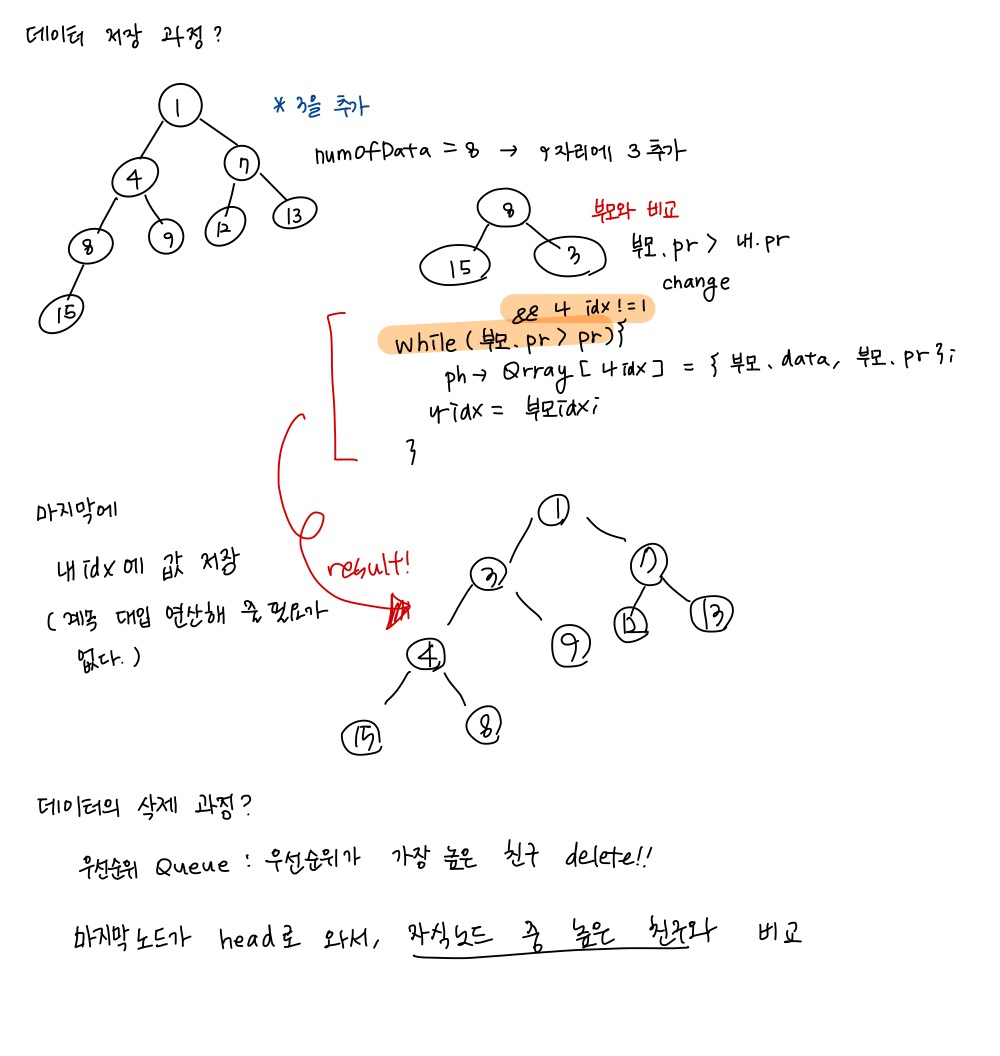 데이터 저장 과정?
1
* 3을 추가
numOfData = 8 → 9자리에 3 추가
4 7
8 9 12 13
15
8
부모와 비교
15 3
부모.pr > 내.pr
change
&& 나 idx != 1
while (부모.pr > pr) {
ph → Qrray [나idx] = { 부모.data, 부모.pr };
나idx = 부모idx;
}
마지막에
내 idx에 값 저장
(계속 대입 연산해 줄 필요가
없다.)
result!
1
3 7
4 9 12 13
15 8
데이터의 삭제 과정?
우선순위 Queue : 우선순위가 가장 높은 친구 delete!!
마지막 노드가 head로 와서, 자식노드 중 높은 친구와 비교